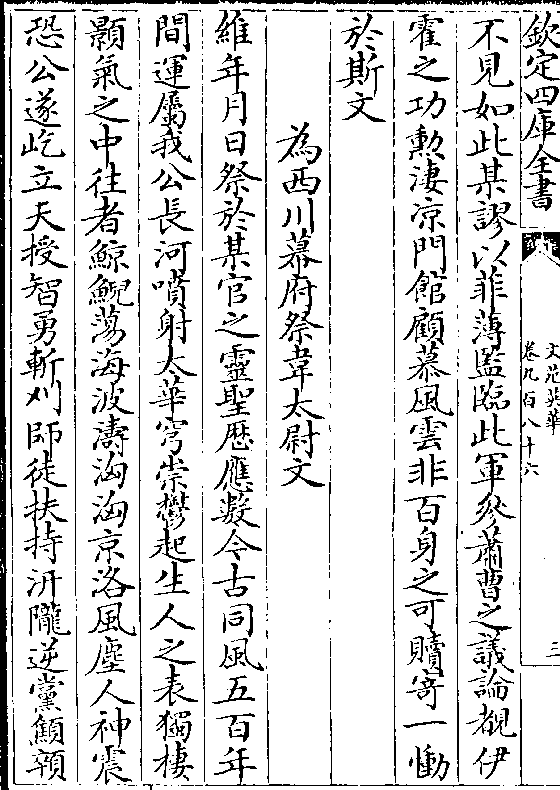 欽定四庫全書
文苑英華
卷九百八十六
三
不見如此某謬以菲薄監臨此軍參蕭曹之議論覩伊
霍之功勲淒凉門館顧慕風雲非百身之可贖寄一慟
於斯文
為西川幕府祭韋太尉文
維年月日祭於某官之靈聖歴應數今古同風五百年
間運屬我公長河噴射太華穹崇鬱起生人之表獨棲
顥氣之中往者鯨鯢蕩海波濤洶洶京洛風塵人神震
恐公遂屹立天授智勇斬刈師徒扶持汧隴逆黨顛